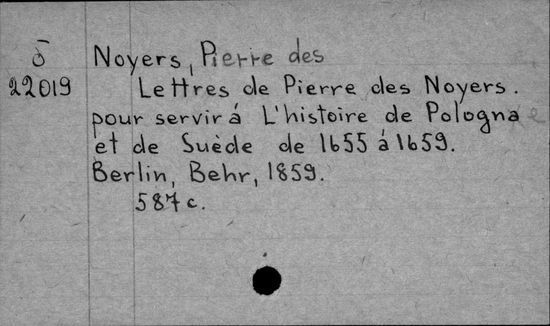 ō Noyers, Pierre des
22019 Lettres de Pierre des Noyers.
pour servir á L'histoire de Pologna e
et de Suède de 1655 á 1659.
Berlin, Behr, 1859.
587 c.